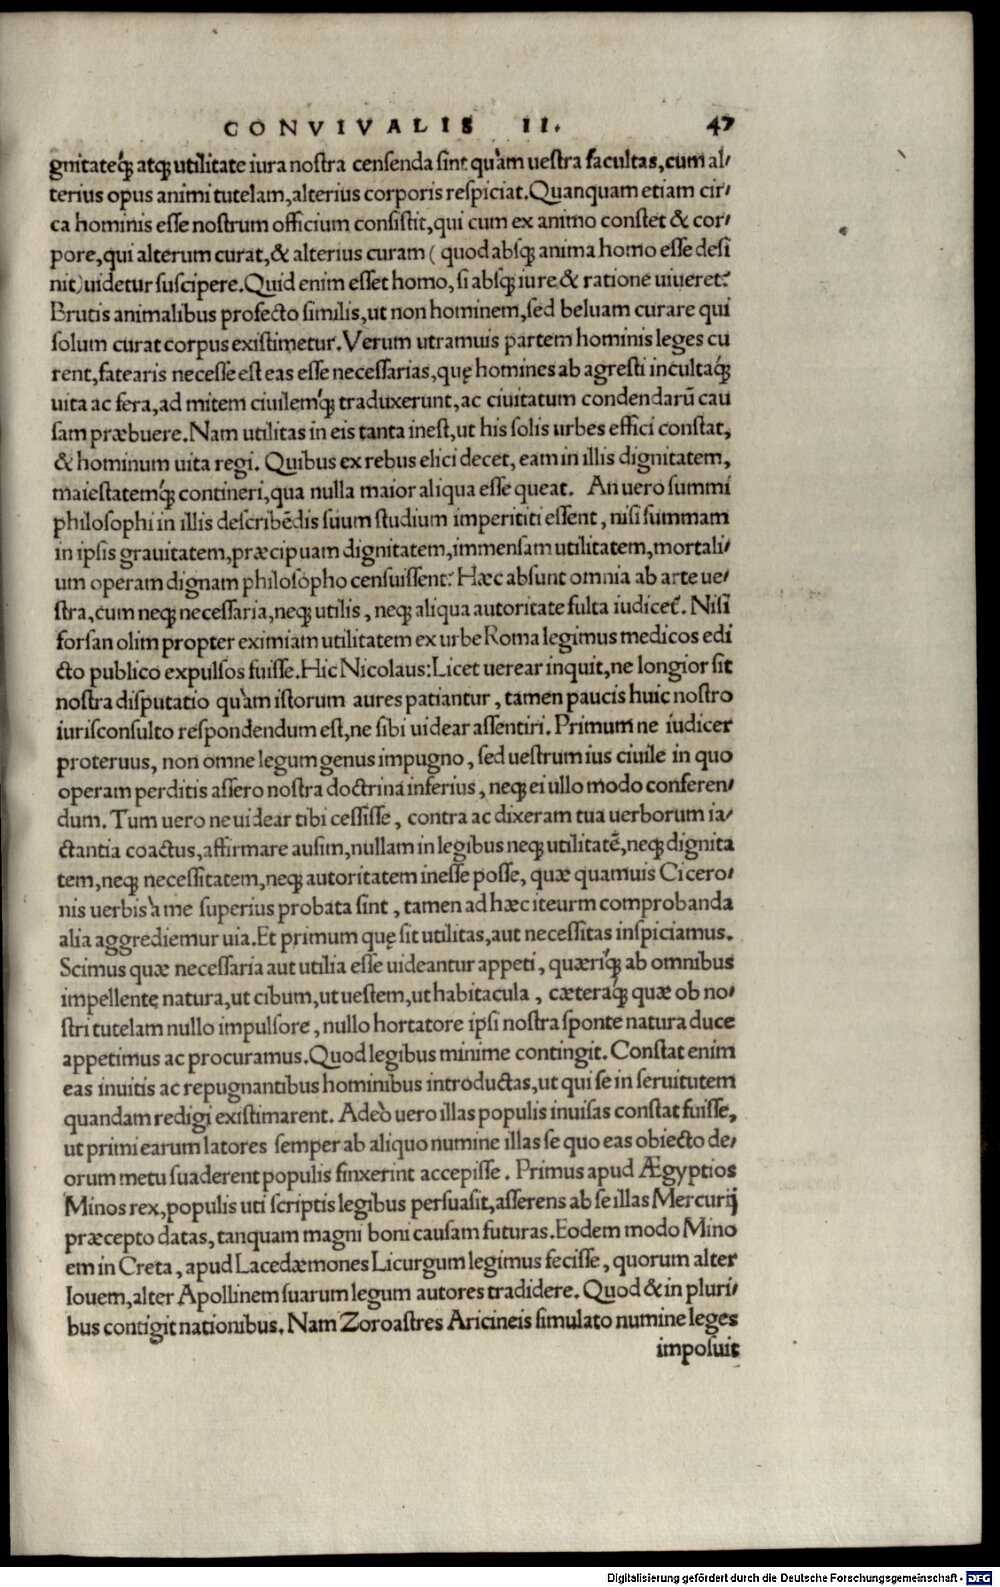 CONVIVALIS II. 47
gnitateq́ꝫ atqꝫ utilitate iura nostra censenda sint quàm uestra facultas, cum al/
terius opus animi tutelam, alterius corporis respiciat. Quanquam etiam cir/
ca hominis esse nostrum officium consistit, qui cum ex animo constet & cor/
pore, qui alterum curat, & alterius curam ( quod absqꝫ anima homo esse desi
nit) uidetur suscipere. Quid enim esset homo, si absqꝫ iure & ratione uiueret?
Brutis animalibus profecto similis, ut non hominem, sed beluam curare qui
solum curat corpus existimetur. Verum utramuis partem hominis leges cu
rent, fatearis necesse est eas esse necessarias, quę homines ab agresti incultaq́ꝫ
uita ac fera, ad mitem ciuilemq́ꝫ traduxerunt, ac ciuitatum condendarū cau
sam præbuere. Nam utilitas in eis tanta inest, ut his solis urbes effici constat,
& hominum uita regi. Quibus ex rebus elici decet, eam in illis dignitatem,
maiestatemq́ꝫ contineri, qua nulla maior aliqua esse queat. An uero summi
philosophi in illis describēdis suum studium impertiti essent, nisi summam
in ipsis grauitatem, præcipuam dignitatem, immensam utilitatem, mortali/
um operam dignam philosopho censuissent? Hæc absunt omnia ab arte ue/
stra, cum neqꝫ necessaria, neqꝫ utilis, neqꝫ aliqua autoritate fulta iudicet᷑. Nisi
forsan olim propter eximiam utilitatem ex urbe Roma legimus medicos edi
cto publico expulsos fuisse. Hic Nicolaus: Licet uerear inquit, ne longior sit
nostra disputatio quàm istorum aures patiantur, tamen paucis huic nostro
iurisconsulto respondendum est, ne sibi uidear assentiri. Primum ne iudicer
proteruus, non omne legum genus impugno, sed uestrum ius ciuile in quo
operam perditis assero nostra doctrina inferius, neqꝫ ei ullo modo conferen/
dum. Tum uero ne uidear tibi cessisse, contra ac dixeram tua uerborum ia/
ctantia coactus, affirmare ausim, nullam in legibus neqꝫ utilitatē, neqꝫ dignita
tem, neqꝫ necessitatem, neqꝫ autoritatem inesse posse, quæ quamuis Cicero/
nis uerbis à me superius probata sint, tamen ad hæc iteurm comprobanda
alia aggrediemur uia. Et primum quę sit utilitas, aut necessitas inspiciamus.
Scimus quæ necessaria aut utilia esse uideantur appeti, quæriq́ꝫ ab omnibus
impellente natura, ut cibum, ut uestem, ut habitacula, cæteraq́ꝫ quæ ob no/
stri tutelam nullo impulsore, nullo hortatore ipsi nostra sponte natura duce
appetimus ac procuramus. Quod legibus minime contingit. Constat enim
eas inuitis ac repugnantibus hominibus introductas, ut qui se in seruitutem
quandam redigi existimarent. Adeò uero illas populis inuisas constat fuisse,
ut primi earum latores semper ab aliquo numine illas se quo eas obiecto de/
orum metu suaderent populis finxerint accepisse. Primus apud Ægyptios
Minos rex, populis uti scriptis legibus persuasit, asserens ab se illas Mercurij
præcepto datas, tanquam magni boni causam futuras. Eodem modo Mino
em in Creta, apud Lacedæmones Licurgum legimus fecisse, quorum alter
Iouem, alter Apollinem suarum legum autores tradidere. Quod & in pluri/
bus contigit nationibus. Nam Zoroastres Aricineis simulato numine leges
imposuit
Digitalisierung gefördert durch die Deutsche Forschungsgemeinschaft - DFG